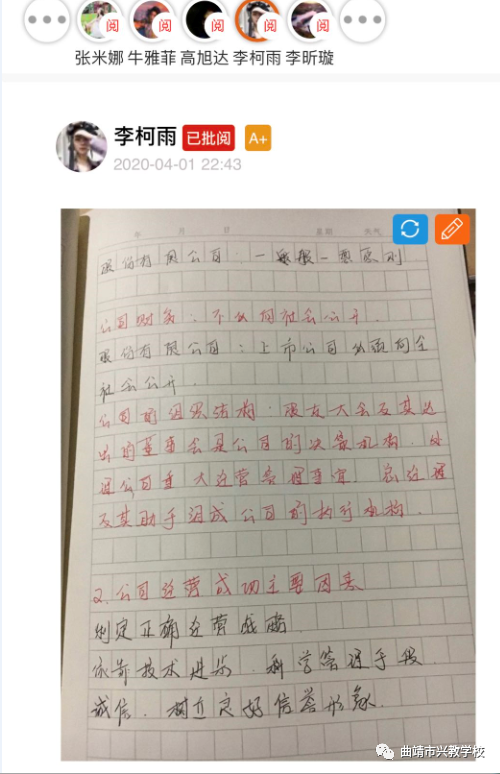 阅 阅 阅 阅 阅
张米娜 牛雅菲 高旭达 李柯雨 李昕璇
李柯雨 已批阅 A+
2020-04-01 22:43
年 月 日 星期 天气
股份有限公司:一般股一票原则
公司财务:不必向社会公开.
股份有限公司:上市公司必须向全
社会公开.
公司的组织结构:股东大会及其选
出的董事会是公司的决策机构.处
理公司重大经营管理事宜.总经理
及其助手组成公司的执行机构.
2.公司经营成功主要因素
制定正确经营战略
依靠技术进步.科学管理手段
诚信.树立良好信誉形象.
曲靖市兴教学校